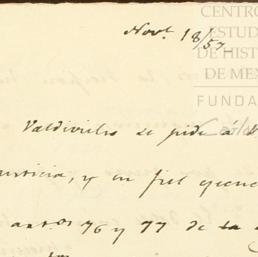 Novbe. 18/57
CENTRO
ESTUD
DE HIST
DE MEX
FUNDA
Valdivielso se pide á
usticia, y en fiel
artos 76 y 77 de la